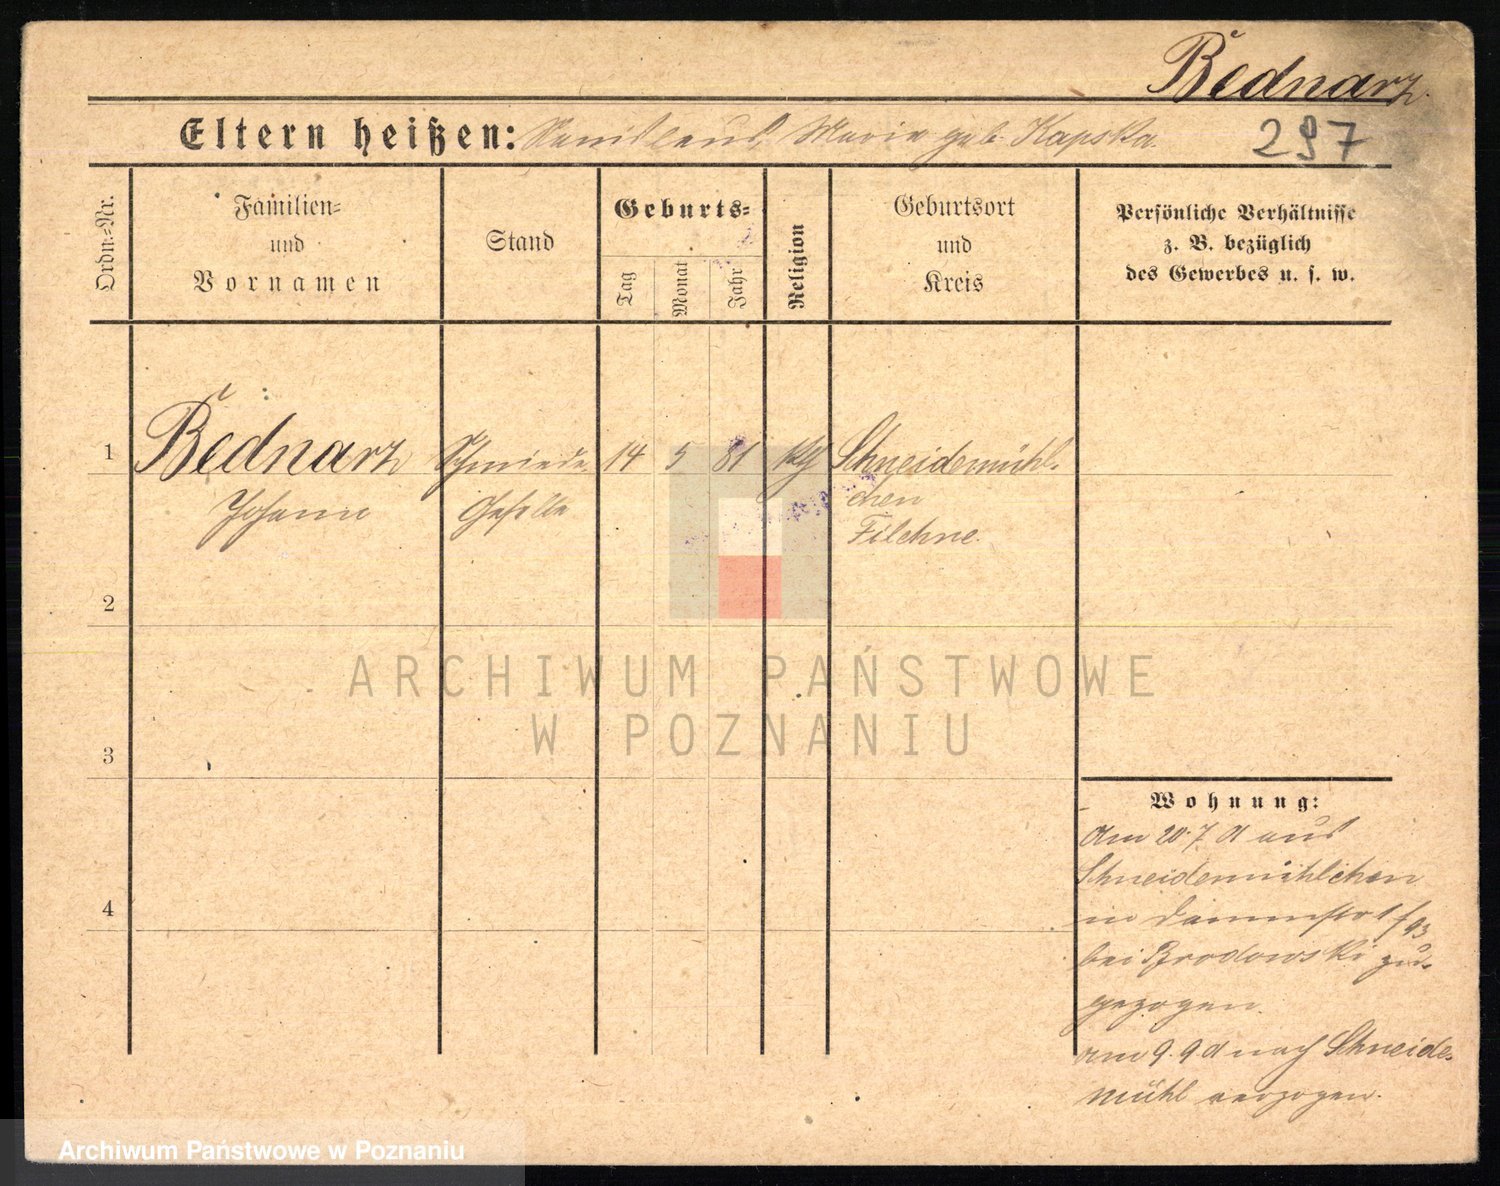 Bednarz.
Eltern heißen: Marie geb. Kapska.
297
Ordn.=Nr.
Familien=
und
Vornamen
Stand
Geburts=
Tag
Monat
Jahr
Religion
Geburtsort
und
Kreis
Persönliche Verhältnisse
z. B. bezüglich
des Gewerbes u. s. w.
1 Bednarz Schmiede 14 5 81 kth Schneidemühl=
Johann Geselle chen
Filehne.
2
3
4
Wohnung:
Am 20.7 01 aus
Schneidemühlchen
in Dammstr 1/93
bei Brodowski zu=
gezogen.
am 9.9 01 nach Schneide=
mühl verzogen.
ARCHIWUM PAŃSTWOWE
W POZNANIU
Archiwum Państwowe w Poznaniu